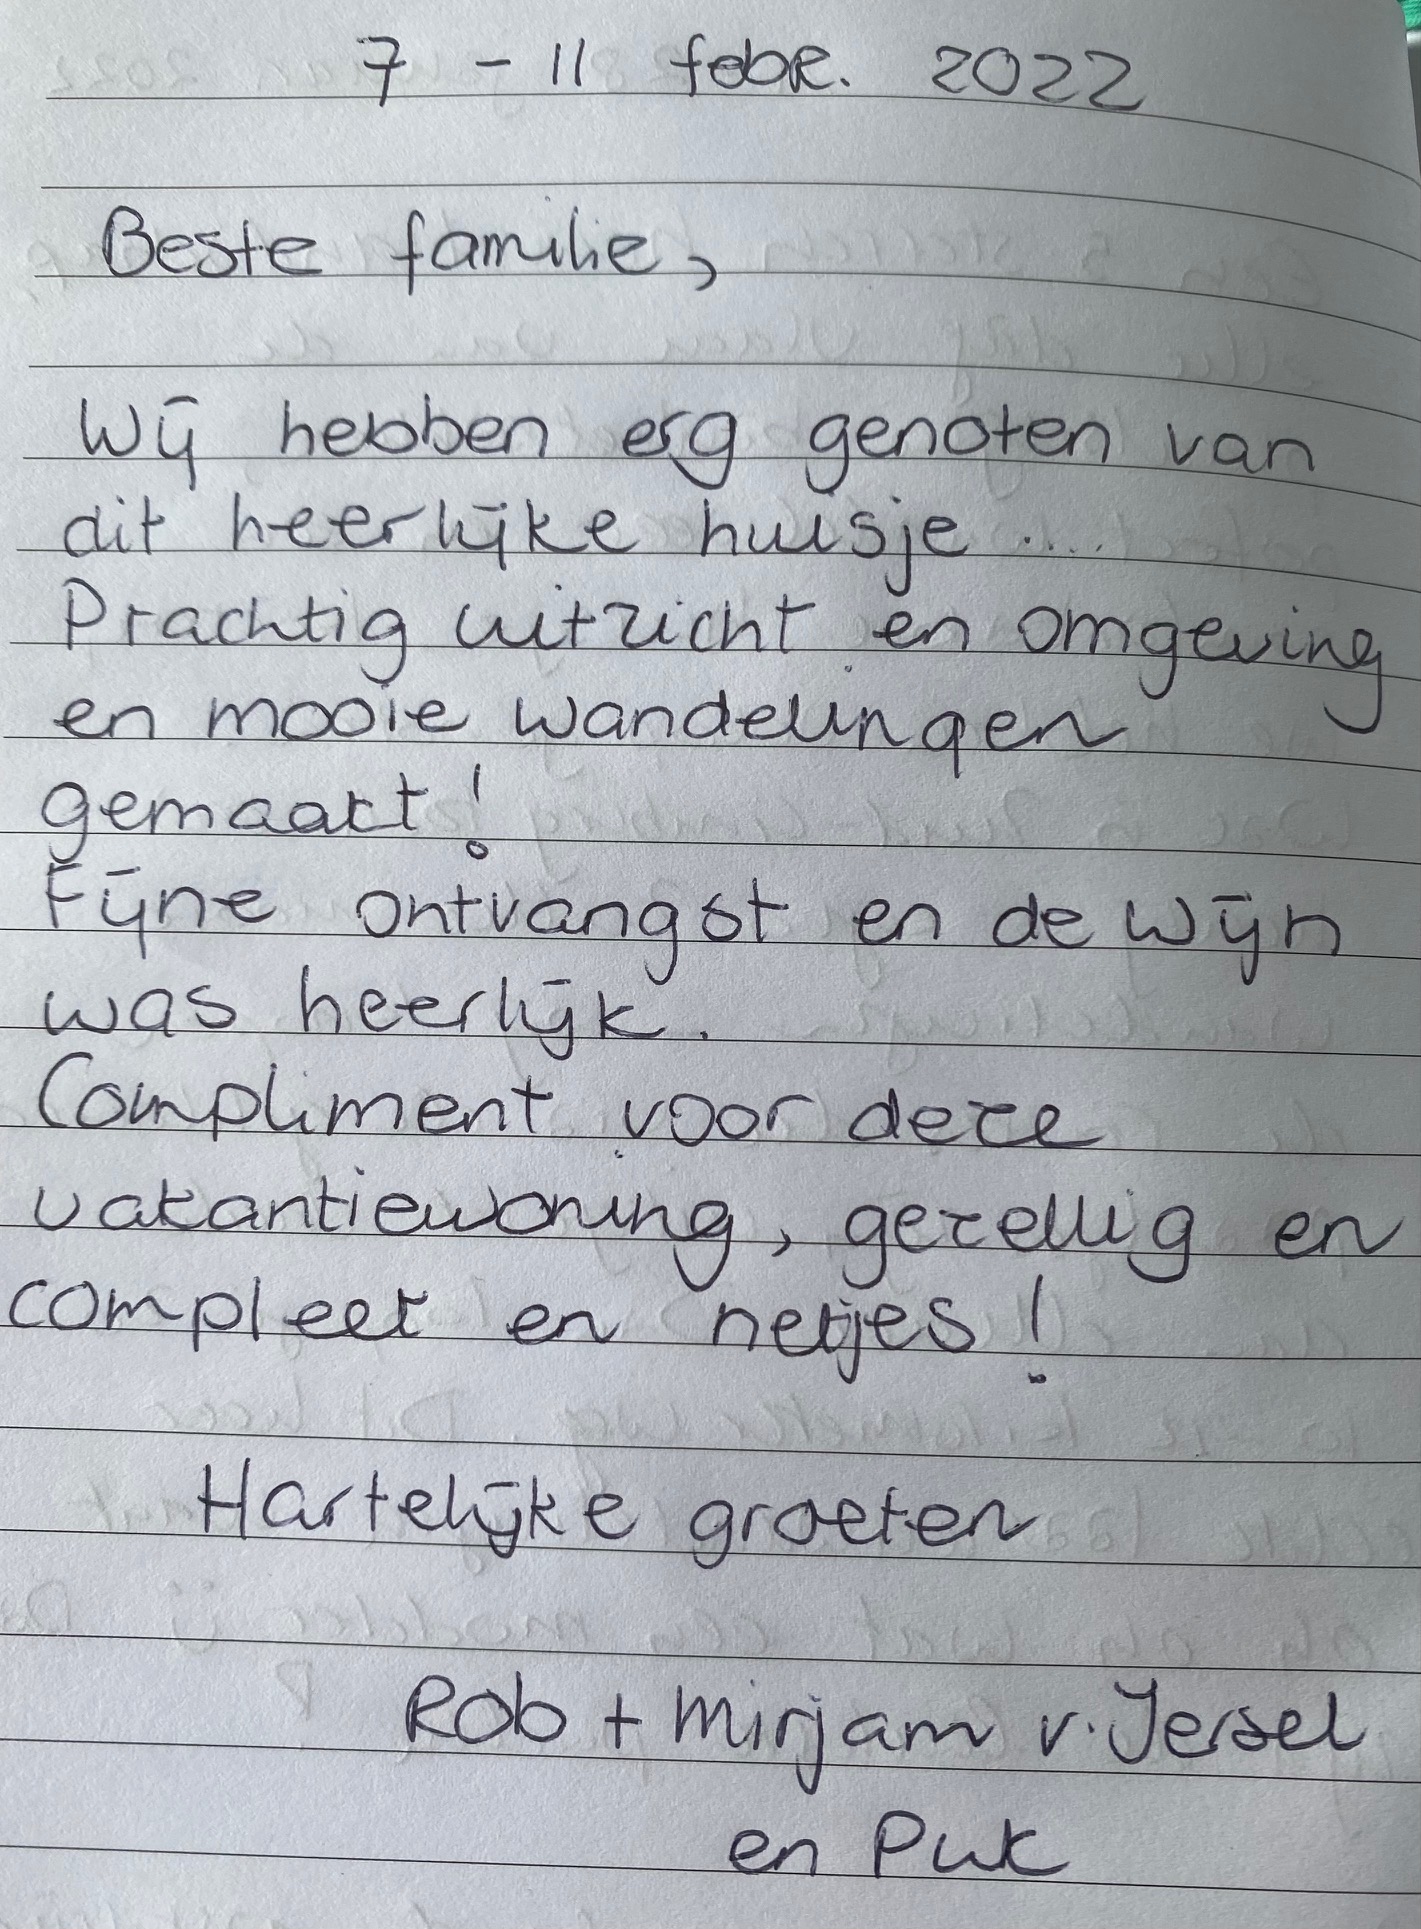 7 - 11 febr. 2022
Beste familie,
Wij hebben erg genoten van
dit heerlijke huisje ....
Prachtig uitzicht en omgeving
en mooie wandelingen
gemaakt!
Fijne ontvangst en de wijn
was heerlijk.
Compliment voor deze
vakantiewoning, gezellig en
compleet en netjes!
Hartelijke groeten
Rob + Mirjam v. Iersel
en Puk